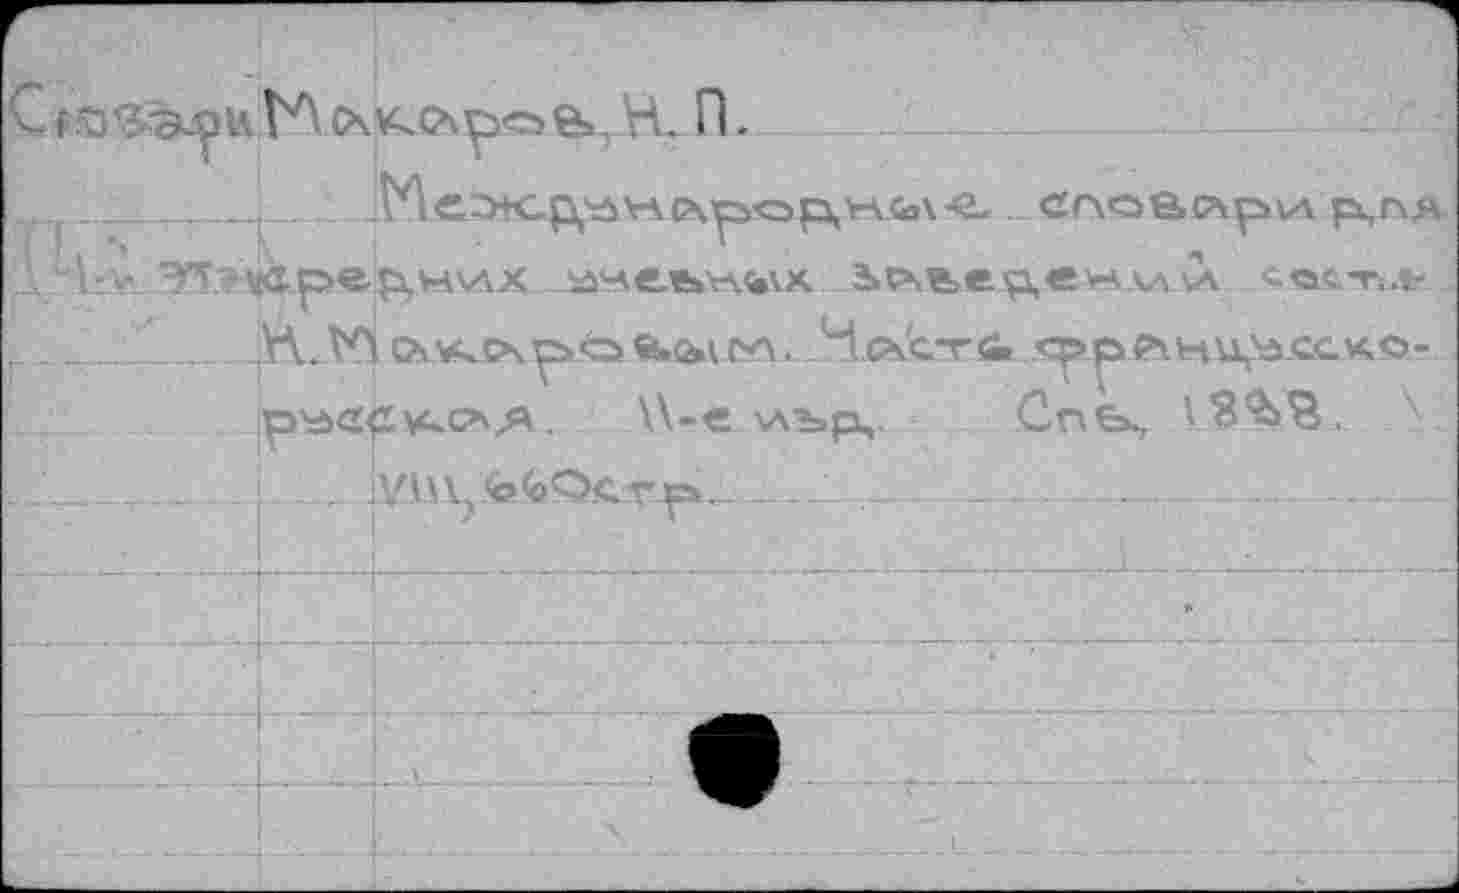 Словари Макаров, Н. П.
Международные словари для
средних учебных заведений сост.
Н. Макаровым. Часть французско-
русская. 11-е изд. Спб.,
VIII, 660 стр.